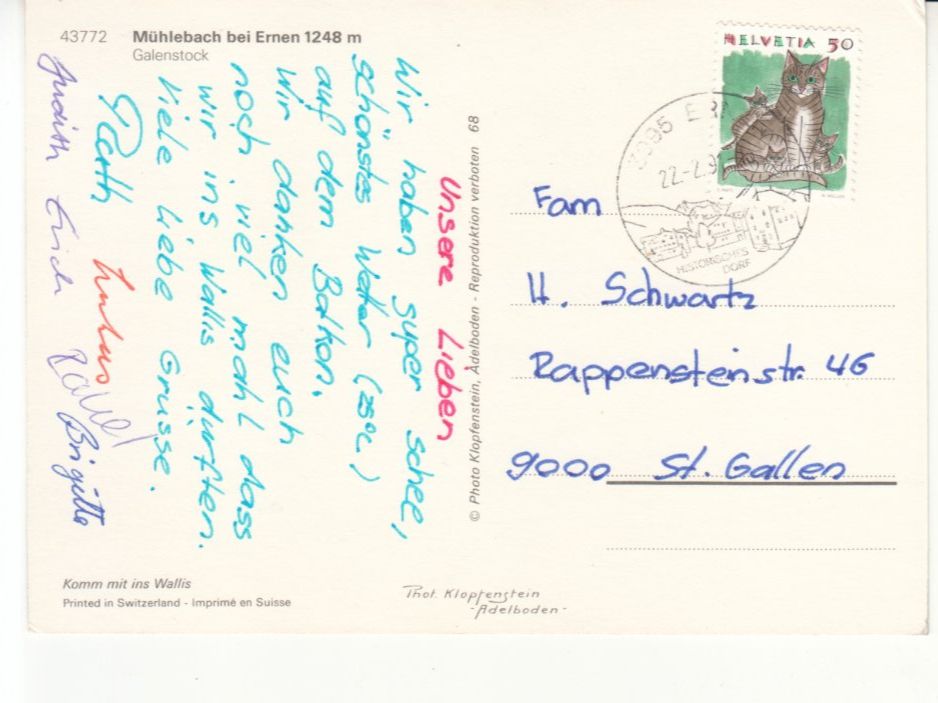 43772 Mühlebach bei Ernen 1248 m
Galenstock
Unsere Lieben
Wir haben super schee,
schönstes Wetter (25°C)
auf dem Balkon.
Wir danken euch
noch viel mahl dass
wir ins Wallis dürften.
Viele Liebe Grüsse.
Judith Erich Brigitte
© Photo Klopfenstein, Adelboden - Reproduktion verboten 68
HELVETIA 50
3995
22.-2.9
HISTORISCHES
DORF
Fam
H. Schwartz
Rappensteinstr. 46
9000 St. Gallen
Komm mit ins Wallis
Printed in Switzerland - Imprimé en Suisse
Phot. Klopfenstein
- Adelboden -